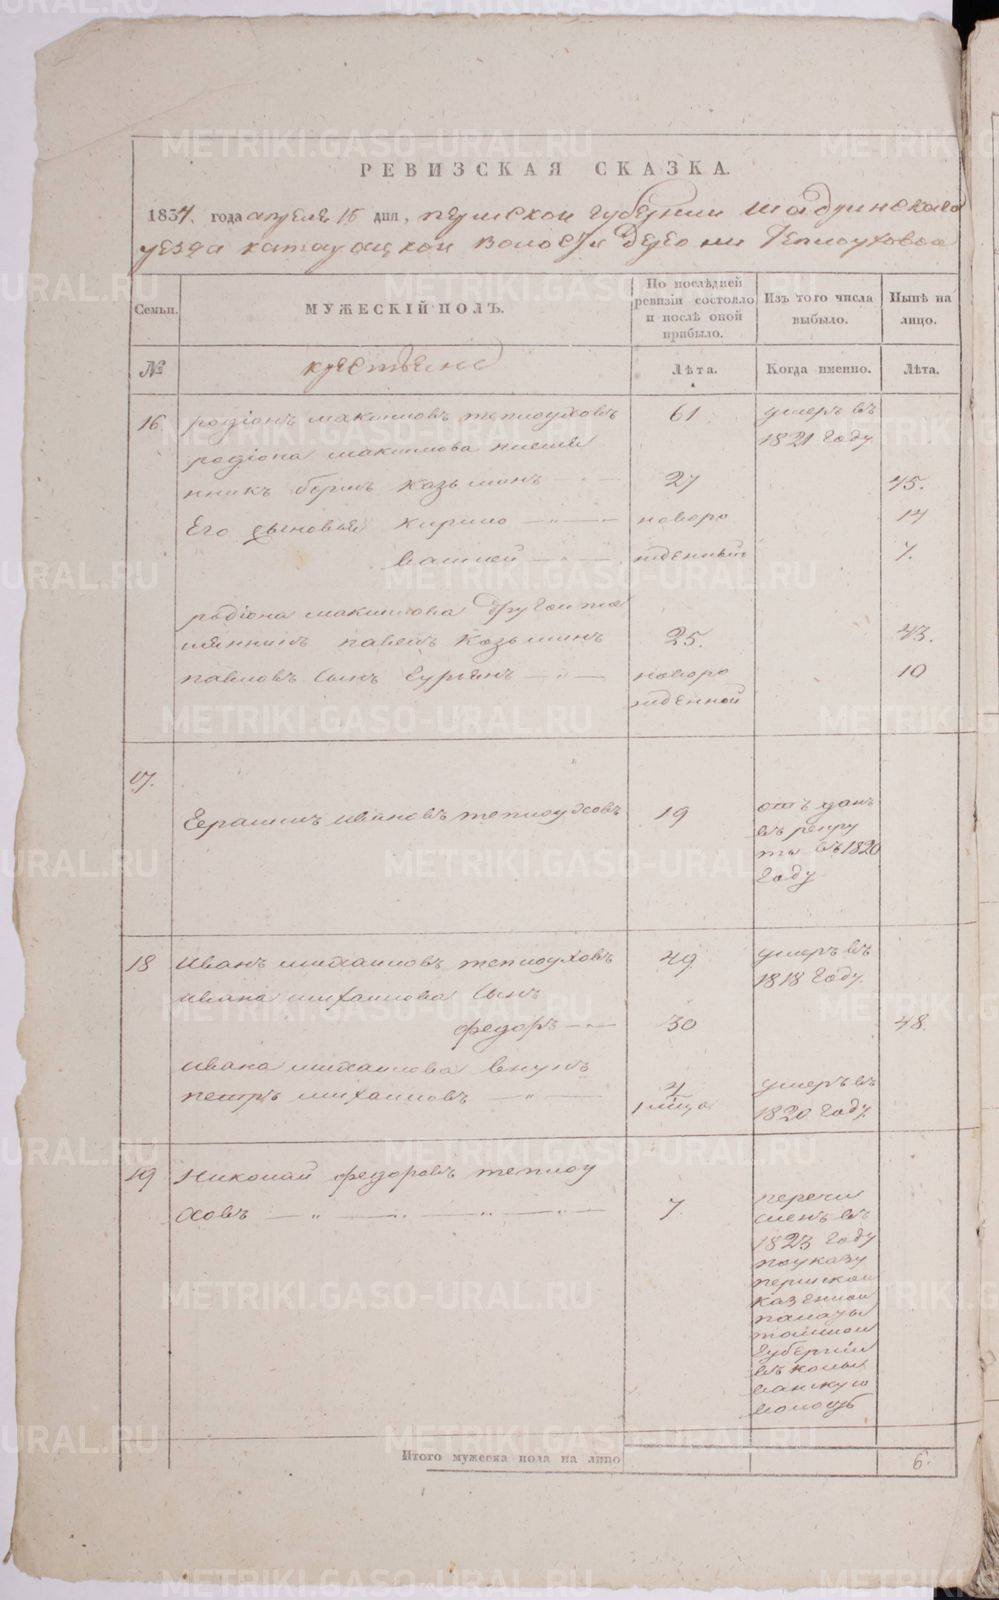 РЕВИЗСКАЯ СКАЗКА.
1834 года апреля 15 дня, пермской губернии шадринскаго
уезда катайской волости деревни Теплоуховой
Семьи.
МУЖЕСКІЙ ПОЛЪ.
По послѣдней ревизіи состояло и послѣ оной прибыло.
Изъ того числа выбыло.
Нынѣ на лицо.
№
крестьяне
Лѣта.
Когда именно.
Лѣта.
16 родіонъ максимовъ теплоуховъ 61 умеръ въ
1821 году
родіона максимова племя
нникъ борисъ козьминъ 27 45.
Его сыновья кирило новоро 14
жденный 7.
родіона максимова другой пле
мянникъ павелъ козьминъ 25. 43.
павловъ сынъ новоро 10
жденной
17.
Ерасимъ ивановъ теплоуховъ 19 отъ данъ
въ рекру
ты въ 1820
году
18 Иванъ михаиловъ теплоуховъ 49 умеръ въ
1818 году
ивана михаилова сынъ
федоръ 30 48.
ивана михаилова внукъ
петръ михаиловъ 4 умеръ въ
1820 году
19 Николай федоровъ теплоу
ховъ 7 перечи
сленъ въ
1823 году
по указу
пермской
казенной
палаты
томской
губерніи
въ колы
ванскую
волость
Итого мужеска пола на лицо 6.
METRIKI.GASO-URAL.RU